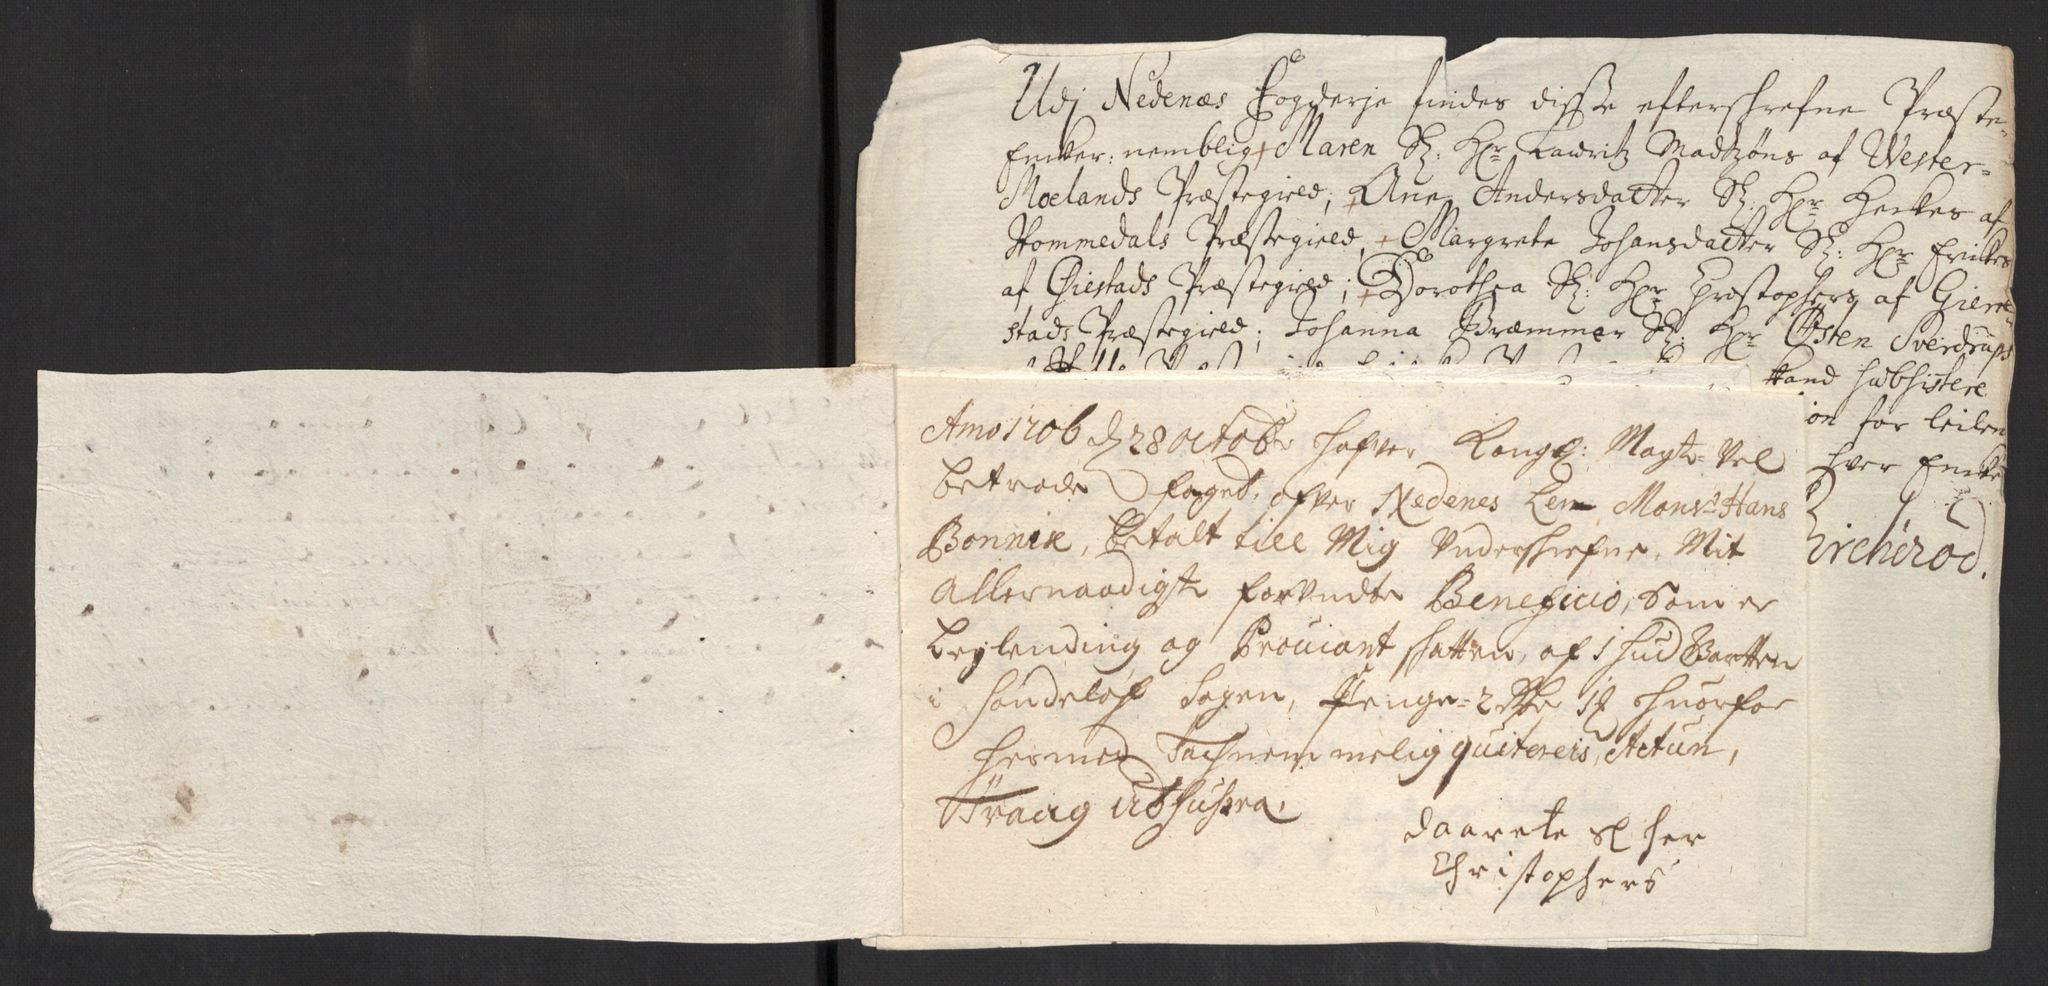 Udj Nedenæs Fogderje findes disse efterschrefne Præste-
Encker: nemblig + Maren Sl: Hr Lawritz Madtzøns af Wester-
Moelands Præstegield; + Ane Andersdatter Sl: Hr Henkes af
Hommedals Præstegield, + Margrete Johansdatter Sl: Hr Erickes
af Øiestads Præstegield; + Dorothea Sl: Hr Christophers af Giere-
stads Præstegield; Johanna Bræmmer Sl: Hr Østen Sverdrups
kand subsistere
ion for leilen
hver Encke
Anno 1706 d 28 octobr hafver Kongl: Mayts Vel
betrode foged ofver Nedenes Len Monsr Hans
Bonnix, betalt till Mig Underschrefne, Mit
allernaadigste forundte Beneficio, som er
Leylending og Prouiant shatten, af 1 hud Bartten
i Søndeløf Sogen, Penge = 2 Rdr 1 ß huorfor
hermed Tachnemmelig quitereis, Actum,
daarete sl her
Christophers